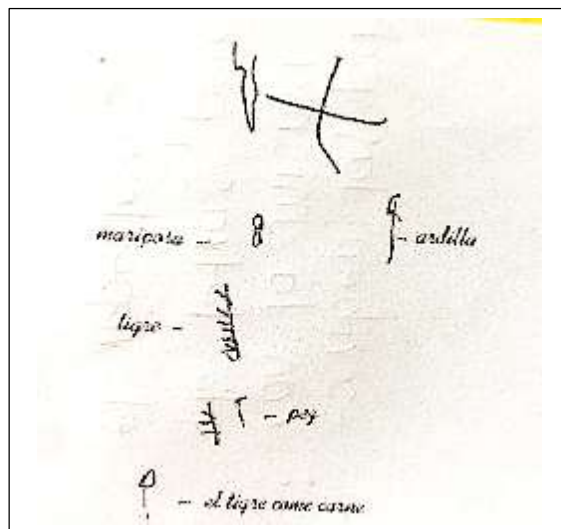 mariposa - ardilla
tigre -
- pez
- el tigre come carne